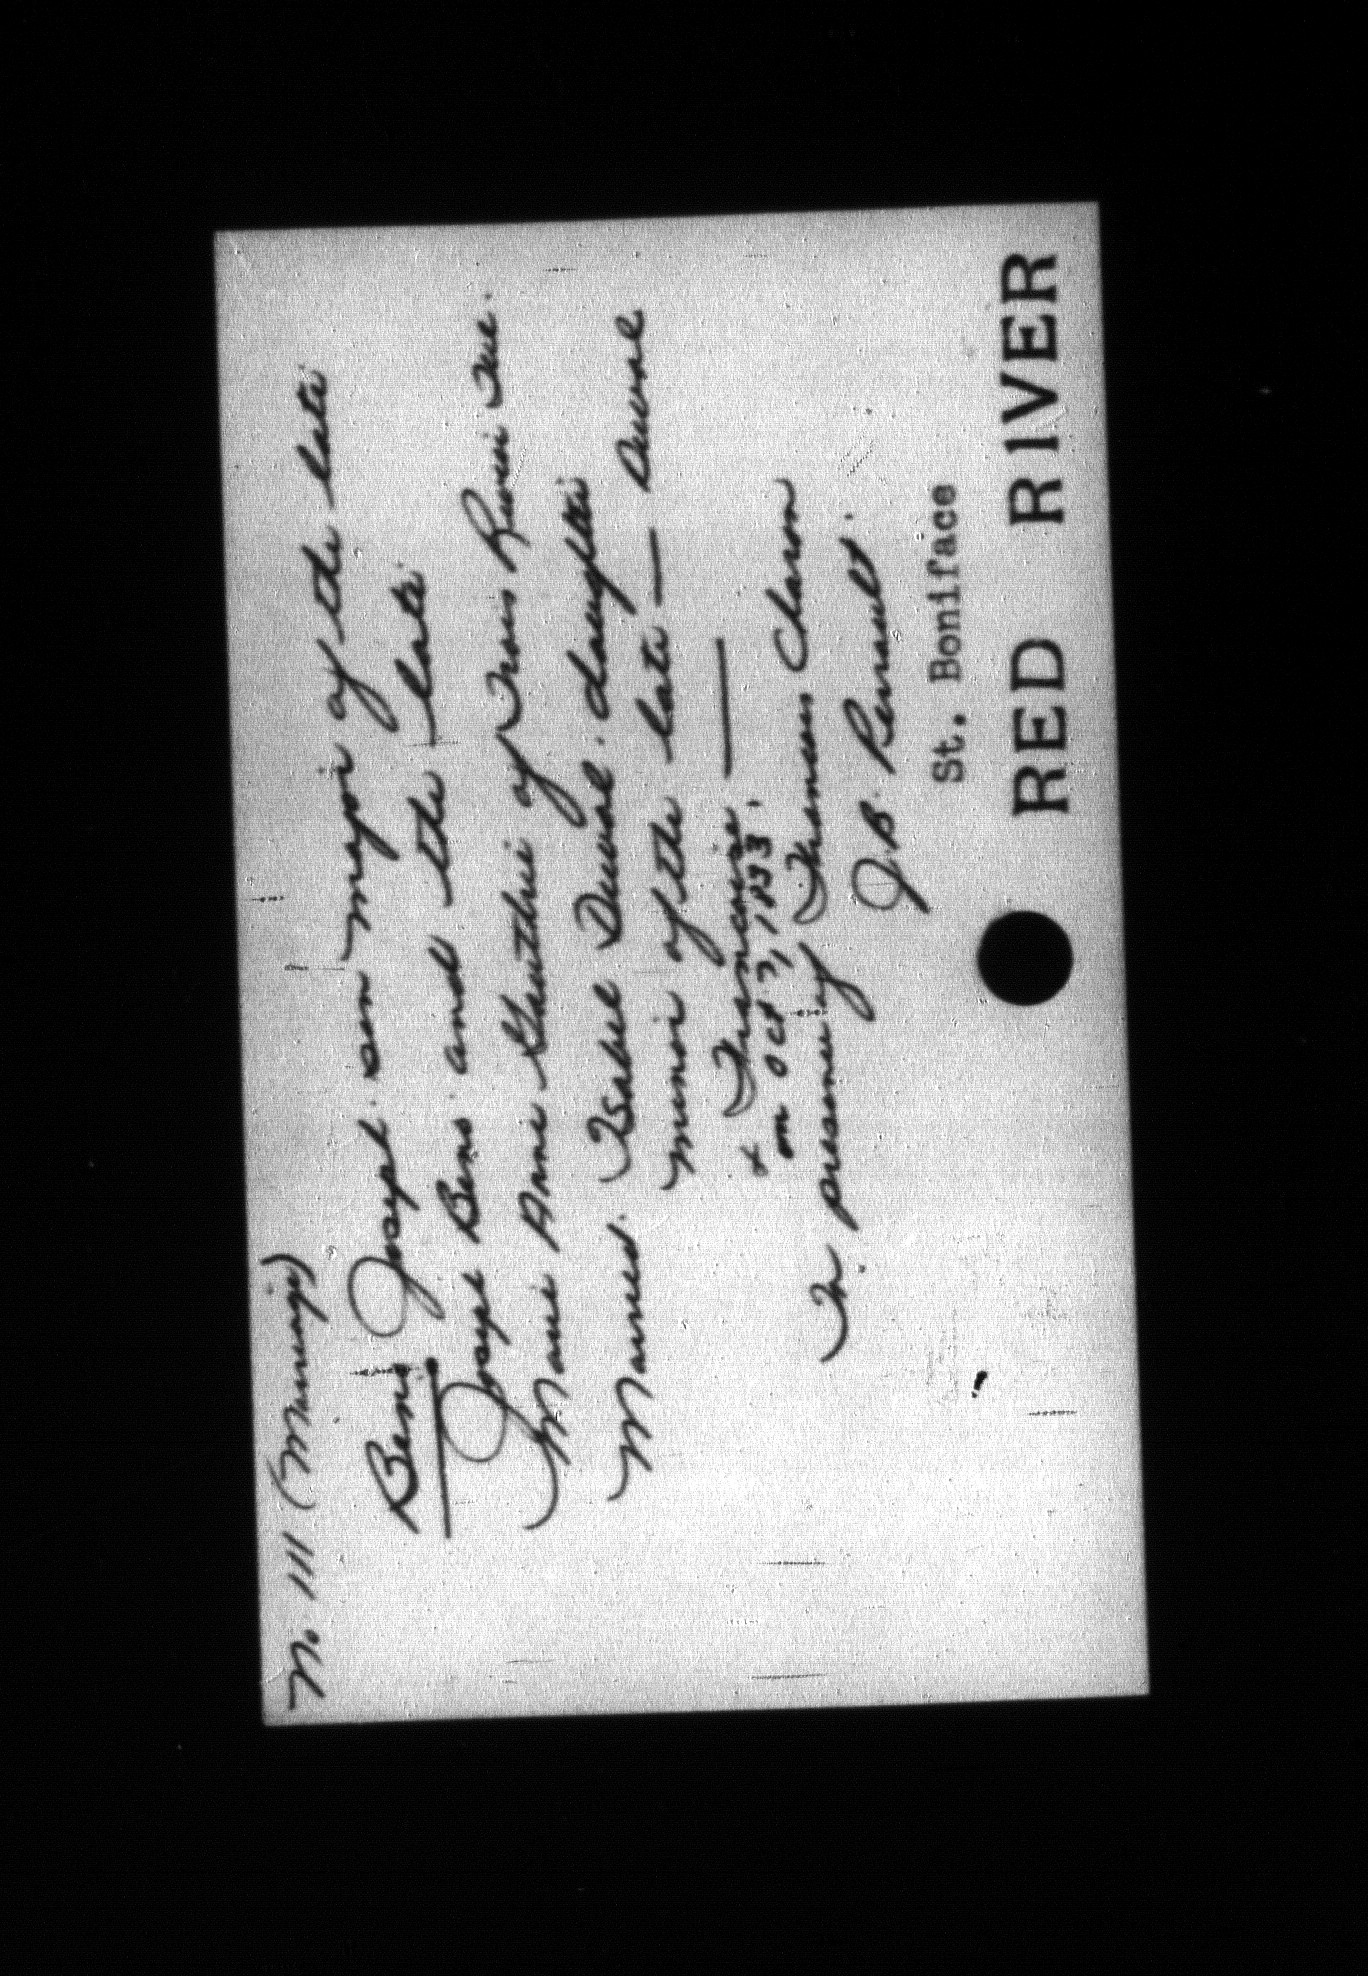 M. 111 (Marriage)
Beno Joseph. son major of the late
Joseph Beno. and the late
Marie Anne Gauthie of Trois Rivieres Que.
Married. Isabel Duval. daughter
minor of the late — Duval
& Francoise —
on Oct 7, 1833.
In presence of Francois Charon
J.B. Renault.
St. Boniface
RED RIVER